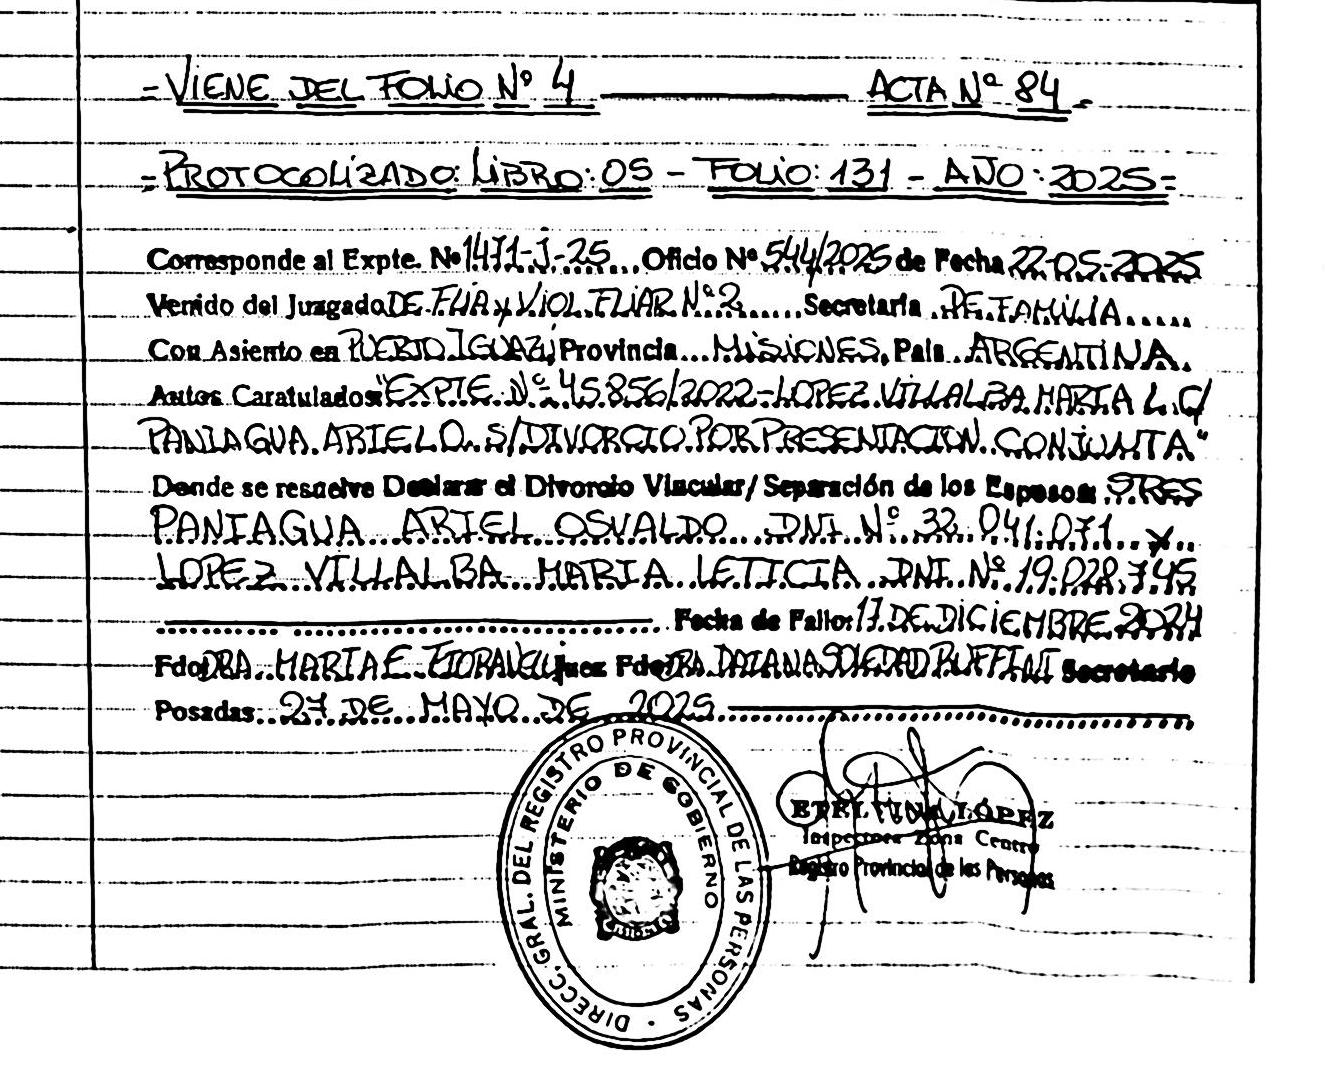 = VIENE DEL FOLIO Nº 4 ——— ACTA Nº 84 =
= PROTOCOLIZADO: LIBRO: 05 - FOLIO: 131 - AÑO: 2025 =
Corresponde al Expte. Nº 1471-J-25 Oficio Nº 544/2025 de Fecha 22-05-2025
Venido del Juzgado DE FLIA y VIOL. FLIAR Nº 2 Secretaria DE FAMILIA
Con Asiento en PUERTO IGUAZÚ Provincia MISIONES, Pais ARGENTINA.
Autos Caratulados "EXPTE. Nº 45.856/2022-LOPEZ VILLALBA MARIA L. C/
PANIAGUA ARIEL O. S/DIVORCIO POR PRESENTACION CONJUNTA"
Donde se resuelve Declarar el Divorcio Vincular/ Separación de los Esposos: STRES
PANIAGUA ARIEL OSVALDO DNI Nº 32.041.071 y
LOPEZ VILLALBA MARIA LETICIA DNI Nº 19.028.745
Fecha de Fallo: 17 DE DICIEMBRE 2024
Fdo: DRA. MARIA E. FIORAVELLI Juez Fdo: DRA DAIANA SOLEDAD RUFFINI Secretario
Posadas 27 DE MAYO DE 2025
DIRECC. GRAL. DEL REGISTRO PROVINCIAL DE LAS PERSONAS
MINISTERIO DE GOBIERNO
ETELVINA LÓPEZ
Inspectora Zona Centro
Registro Provincial de las Personas